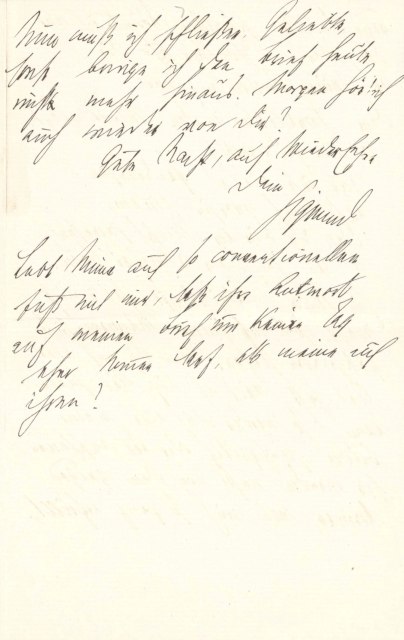 Nun muß ich schließen. Geliebte,
sonst bringe ich den Brief heute
nicht mehr hinaus. Morgen hör' ich
auch wieder von Dir?
Gute Nacht, auf Wiedersehen
Dein
Sigmund
Lebt Minna auf so conventionellen
Fuß mit mir, daß ihre Antwort
auf meinen Brief um keinen Tag
eher kommen darf, als meine auf
ihren?